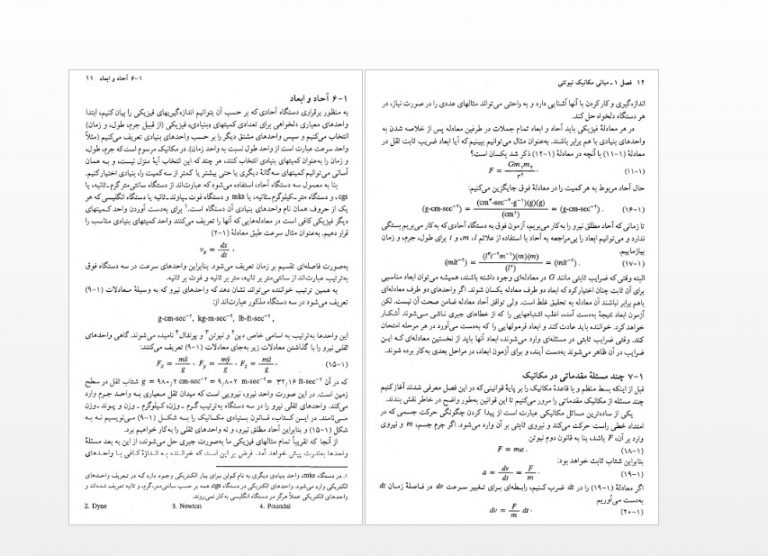 ۶-۱ آحاد و ابعاد ۱۱
۶-۱ آحاد و ابعاد
به منظور برقراری دستگاه آحادی که بر حسب آن بتوانیم اندازه‌گیریهای فیزیکی را بیان کنیم، ابتدا
واحدهای معیاری دلخواهی برای تعدادی کمیتهای «بنیادی» فیزیکی (از قبیل جرم، طول، و زمان)
انتخاب می‌کنیم و سپس واحدهای مشتق دیگر را بر حسب واحدهای بنیادی تعریف می‌کنیم (مثلاً
واحد سرعت عبارت است از واحد طول نسبت به واحد زمان). در مکانیک مرسوم است که جرم، طول،
و زمان را به‌عنوان کمیتهای بنیادی انتخاب کنند، هر چند که این انتخاب آیهٔ منزل نیست، و به همان
آسانی می‌توانیم کمیتهای سه‌گانهٔ دیگری یا حتی بیشتر یا کمتر از سه کمیت را، بنیادی اختیار کنیم.
بنا به معمول سه دستگاه آحاد، استفاده می‌شود که عبارت‌اند از دستگاه سانتی‌متر ـ گرم ـ ثانیه، یا
cgs، و دستگاه متر ـ کیلوگرم ـ ثانیه، یا mks و دستگاه فوت ـ پاوند ـ ثانیه یا دستگاه انگلیسی که هر
یک از حروف همان نام واحدهای بنیادی آن دستگاه است.۱ برای به‌دست آوردن واحد کمیتهای
دیگر فیزیکی کافی است در معادله‌هایی که آنها را تعریف می‌کنند واحد کمیتهای بنیادی مناسب را
قرار دهیم. به‌عنوان مثال سرعت طبق معادلهٔ (۱-۲)
vₓ = dx/dt
به‌صورت فاصله‌ای تقسیم بر زمان تعریف می‌شود. بنابراین واحدهای سرعت در سه دستگاه فوق
به‌ترتیب عبارت‌اند از سانتی‌متر بر ثانیه، متر بر ثانیه و فوت بر ثانیه.
به همین ترتیب خواننده می‌تواند نشان دهد که واحدهای نیرو که به وسیلهٔ معادلات (۱-۹)
تعریف می‌شود در سه دستگاه مذکور عبارت‌اند از:
g-cm-sec⁻², kg-m-sec⁻², lb-ft-sec⁻²,
این واحدها به‌ترتیب به اسامی خاص دین۲ و نیوتن۳ و پوندال۴ نامیده می‌شوند. گاهی واحدهای
ثقلی نیرو را با گذاشتن معادلات زیر به‌جای معادلات (۱-۹) تعریف می‌کنند:
(۱-۱۵) Fₓ = mẍ/g, F_y = mÿ/g, F_z = mz̈/g
که در آن g = ۹۸۰٫۲ cm-sec⁻² = ۹٫۸۰۲ m-sec⁻² = ۳۲٫۱۶ ft-sec⁻² شتاب ثقل در سطح
زمین است. در این صورت واحد نیرو، نیرویی است که میدان ثقل معیاری به واحد جرم وارد
می‌کند. واحدهای ثقلی نیرو را در سه دستگاه به‌ترتیب گرم ـ وزن، کیلوگرم ـ وزن و پوند ـ وزن
می‌نامند. در این کتاب، قانون بنیادی مکانیک را به شکل (۱-۹) می‌نویسیم نه به
شکل (۱-۱۵) و بنابراین آحاد مطلق نیرو، و نه واحدهای ثقلی را به‌کار خواهیم برد.
از آنجا که تقریباً تمام مثالهای فیزیکی ما به‌صورت جبری حل می‌شوند، از این به بعد مسئلهٔ
واحدها به‌ندرت پیش خواهد آمد. فرض بر این است که خواننده به اندازهٔ کافی با واحدهای
۱. در دستگاه mks، واحد بنیادی دیگری به نام کولن برای بار الکتریکی وجود دارد که در تعریف واحدهای
الکتریکی وارد می‌شود. واحدهای الکتریکی در دستگاه cgs همه بر حسب سانتی‌متر، گرم، و ثانیه تعریف شده‌اند و
واحدهای الکتریکی عملاً هرگز در دستگاه انگلیسی به‌کار نمی‌روند.
2. Dyne 3. Newton 4. Poundal
۱۲ فصل ۱ ـ مبانی مکانیک نیوتنی
اندازه‌گیری و کار کردن با آنها آشنایی دارد و به راحتی می‌تواند مثالهای عددی را در صورت نیاز، در
هر دستگاه دلخواه حل کند.
در هر معادلهٔ فیزیکی باید آحاد و ابعاد تمام جملات در طرفین معادله پس از خلاصه شدن به
واحدهای بنیادی با هم برابر باشند. به‌عنوان مثال می‌توانیم ببینیم که آیا ابعاد ضریب ثابت ثقل در
معادلهٔ (۱-۱۱) با آنچه در معادلهٔ (۱-۱۲) ذکر شد یکسان است؟
(۱-۱۱) F = Gm₁m₂/r²
حال آحاد مربوط به هر کمیت را در معادلهٔ فوق جایگزین می‌کنیم.
(۱-۱۶) (g-cm-sec⁻²) = (cm³-sec⁻²-g⁻¹)(g)(g)/(cm²) = (g-cm-sec⁻²).
تا زمانی که آحاد مطلق نیرو را به‌کار می‌بریم، آزمون فوق به دستگاه آحادی که به‌کار می‌بریم بستگی
ندارد و می‌توانیم ابعاد را بی‌مراجعه به آحاد با استفاده از علائم l، m، و t برای طول، جرم، و زمان
بیازماییم.
(۱-۱۷) (mlt⁻²) = (l³t⁻²m⁻¹)(m)(m)/(l²) = (mlt⁻²).
البته وقتی که ضرایب ثابتی مانند G در معادله‌ای وجود داشته باشند، همیشه می‌توان ابعاد مناسبی
برای آن ثابت چنان اختیار کرد که ابعاد دو طرف معادله یکسان شوند. اگر واحدهای دو طرف معادله‌ای
باهم برابر نباشند آن معادله به تحقیق غلط است. ولی توافق آحاد معادله ضامن صحت آن نیست. لکن
آزمون ابعاد نتیجهٔ به‌دست آمده، اغلب اشتباههایی را که از خطاهای جبری ناشی می‌شوند آشکار
خواهد کرد. خواننده باید عادت کند و ابعاد فرمولهایی را که به‌دست می‌آورد در هر مرحله امتحان
کند. وقتی ضرایب ثابتی در مسئله‌ای وارد می‌شوند، ابعاد آنها باید از نخستین معادله‌ای که این
ضرایب در آن ظاهر می‌شوند به‌دست آیند، و برای آزمون ابعاد، در مراحل بعدی به‌کار برده شوند.
۷-۱ چند مسئلهٔ مقدماتی در مکانیک
قبل از اینکه بسط منظم و باقاعدهٔ مکانیک را بر پایهٔ قوانینی که در این فصل معرفی شدند آغاز کنیم
چند مسئله از مکانیک مقدماتی را مرور می‌کنیم تا این قوانین به‌طور واضح در خاطر نقش بندند.
یکی از ساده‌ترین مسائل مکانیکی عبارت است از پیدا کردن چگونگی حرکت جسمی که در
امتداد خطی راست حرکت می‌کند و نیروی ثابتی بر آن وارد می‌شود. اگر جرم جسم، m و نیروی
وارد بر آن، F باشد، بنا به قانون دوم نیوتن
(۱-۱۸) F = ma.
بنابراین شتاب ثابت خواهد بود:
(۱-۱۹) a = dv/dt = F/m.
اگر معادلهٔ (۱-۱۹) را در dt ضرب کنیم، رابطه‌ای برای تغییر سرعت dv در فاصلهٔ زمان dt
به‌دست می‌آوریم
(۱-۲۰) dv = F/m dt.